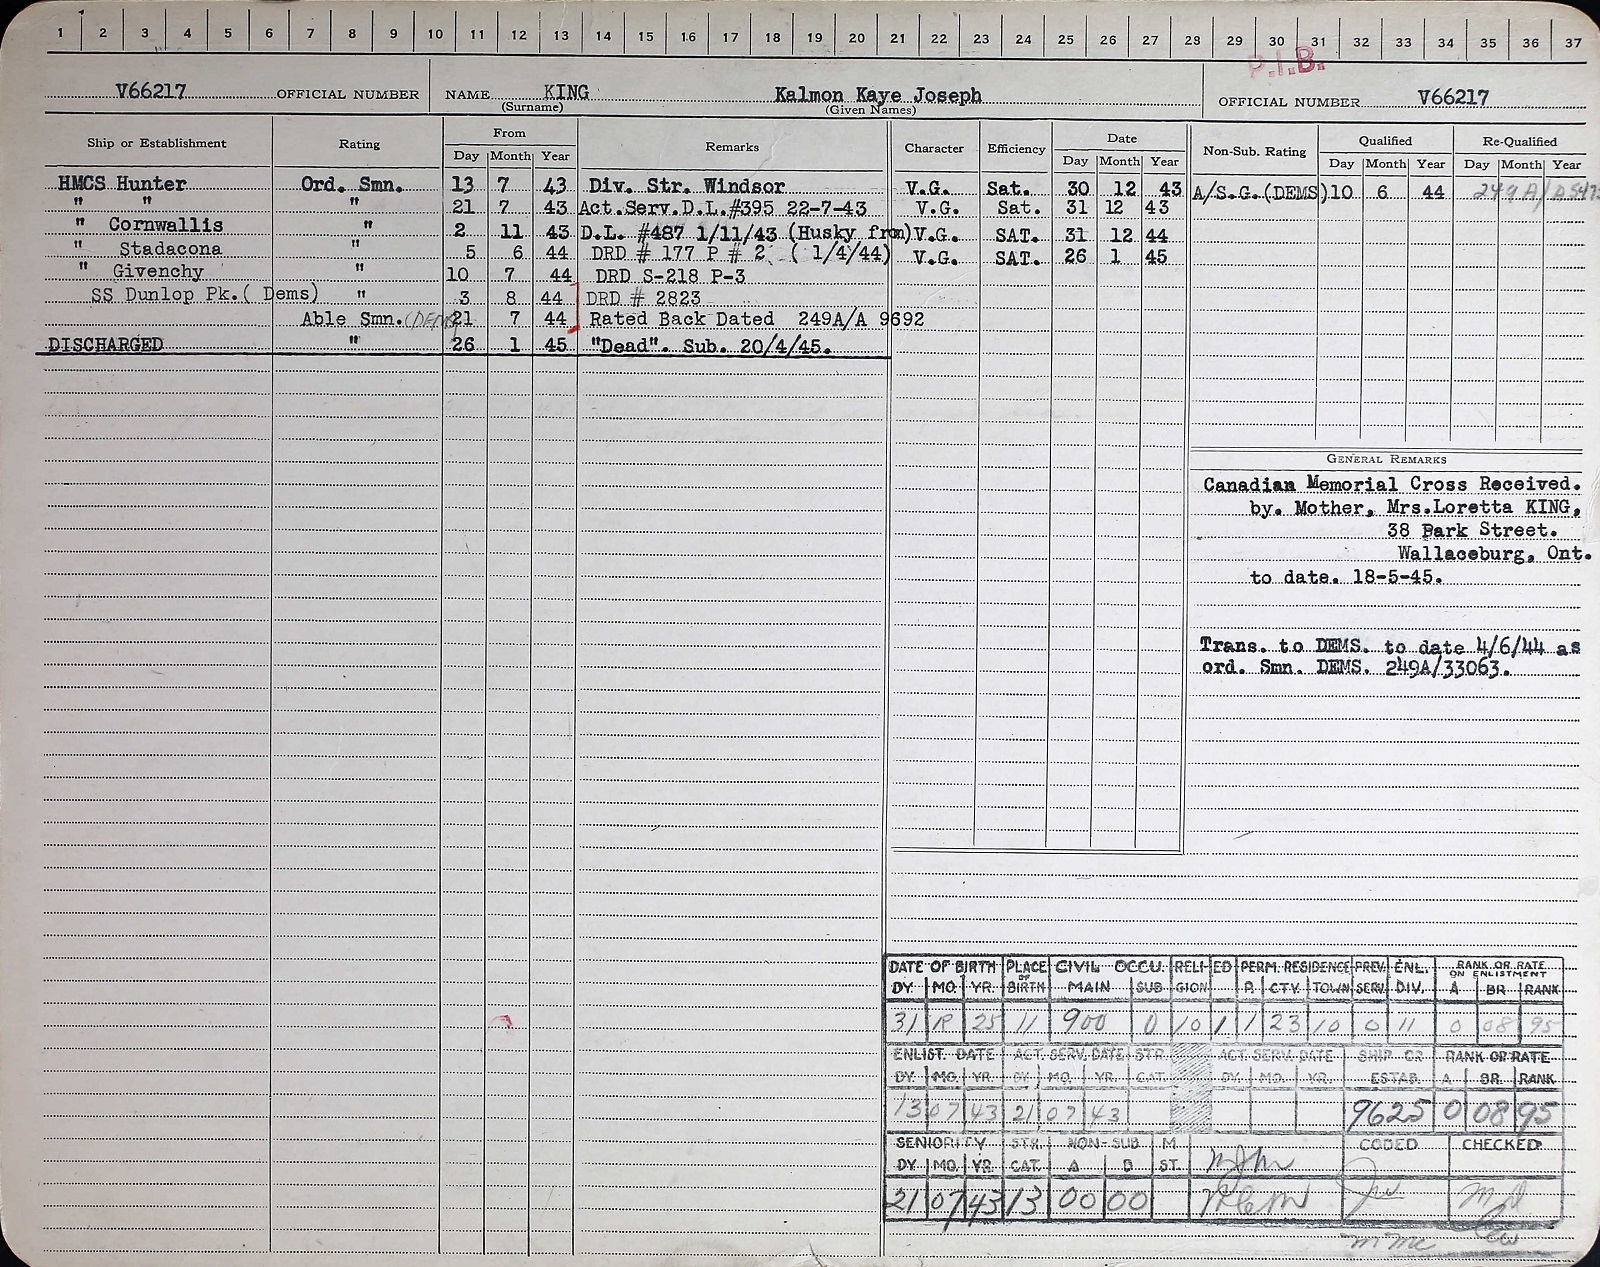 1 2 3 4 5 6 7 8 9 10 11 12 13 14 15 16 17 18 19 20 21 22 23 24 25 26 27 28 29 30 31 32 33 34 35 36 37
P.I.B.
V66217 OFFICIAL NUMBER NAME KING Kalmon Kaye Joseph OFFICIAL NUMBER V66217
(Surname) (Given Names)
Ship or Establishment Rating From Remarks Character Efficiency Date Non-Sub. Rating Qualified Re-Qualified
Day Month Year Day Month Year Day Month Year Day Month Year
HMCS Hunter Ord. Smn. 13 7 43 Div. Str. Windsor V.G. Sat. 30 12 43 A/S.G.(DEMS) 10 6 44 249A/
" " " 21 7 43 Act.Serv.D.L.#395 22-7-43 V.G. Sat. 31 12 43
" Cornwallis " 2 11 43 D.L. #487 1/11/43 (Husky from) V.G. SAT. 31 12 44
" Stadacona " 5 6 44 DRD # 177 P # 2 ( 1/4/44) V.G. SAT. 26 1 45
" Givenchy " 10 7 44 DRD S-218 P-3
SS Dunlop Pk.( Dems) " 3 8 44 DRD # 2823
Able Smn. (DEMS 21 7 44 Rated Back Dated 249A/A 9692
DISCHARGED " 26 1 45 "Dead". Sub. 20/4/45.
GENERAL REMARKS
Canadian Memorial Cross Received.
by. Mother, Mrs.Loretta KING,
38 Park Street.
Wallaceburg, Ont.
to date. 18-5-45.
Trans. to DEMS. to date 4/6/44 as
ord. Smn. DEMS. 249A/33063.
DATE OF BIRTH PLACE OF BIRTH CIVIL OCCU. RELIGION ED PERM. RESIDENCE PREV. SERV. ENL. DIV. RANK OR RATE ON ENLISTMENT
DY. MO. YR. MAIN SUB P. CTY. TOWN A BR RANK
31 25 11 900 0 10 1 1 23 10 0 11 0 08 95
ENLIST. DATE ACT. SERV. DATE STR. ACT. SERV. DATE SHIP OR RANK OR RATE
DY. MO. YR. DY. MO. YR. CAT. DY. MO. YR. ESTAB. A BR. RANK
13 07 43 21 07 43 9625 0 08 95
SENIORITY STR. NON-SUB M CODED CHECKED
DY. MO. YR. CAT. A B ST.
21 07 43 13 00 00